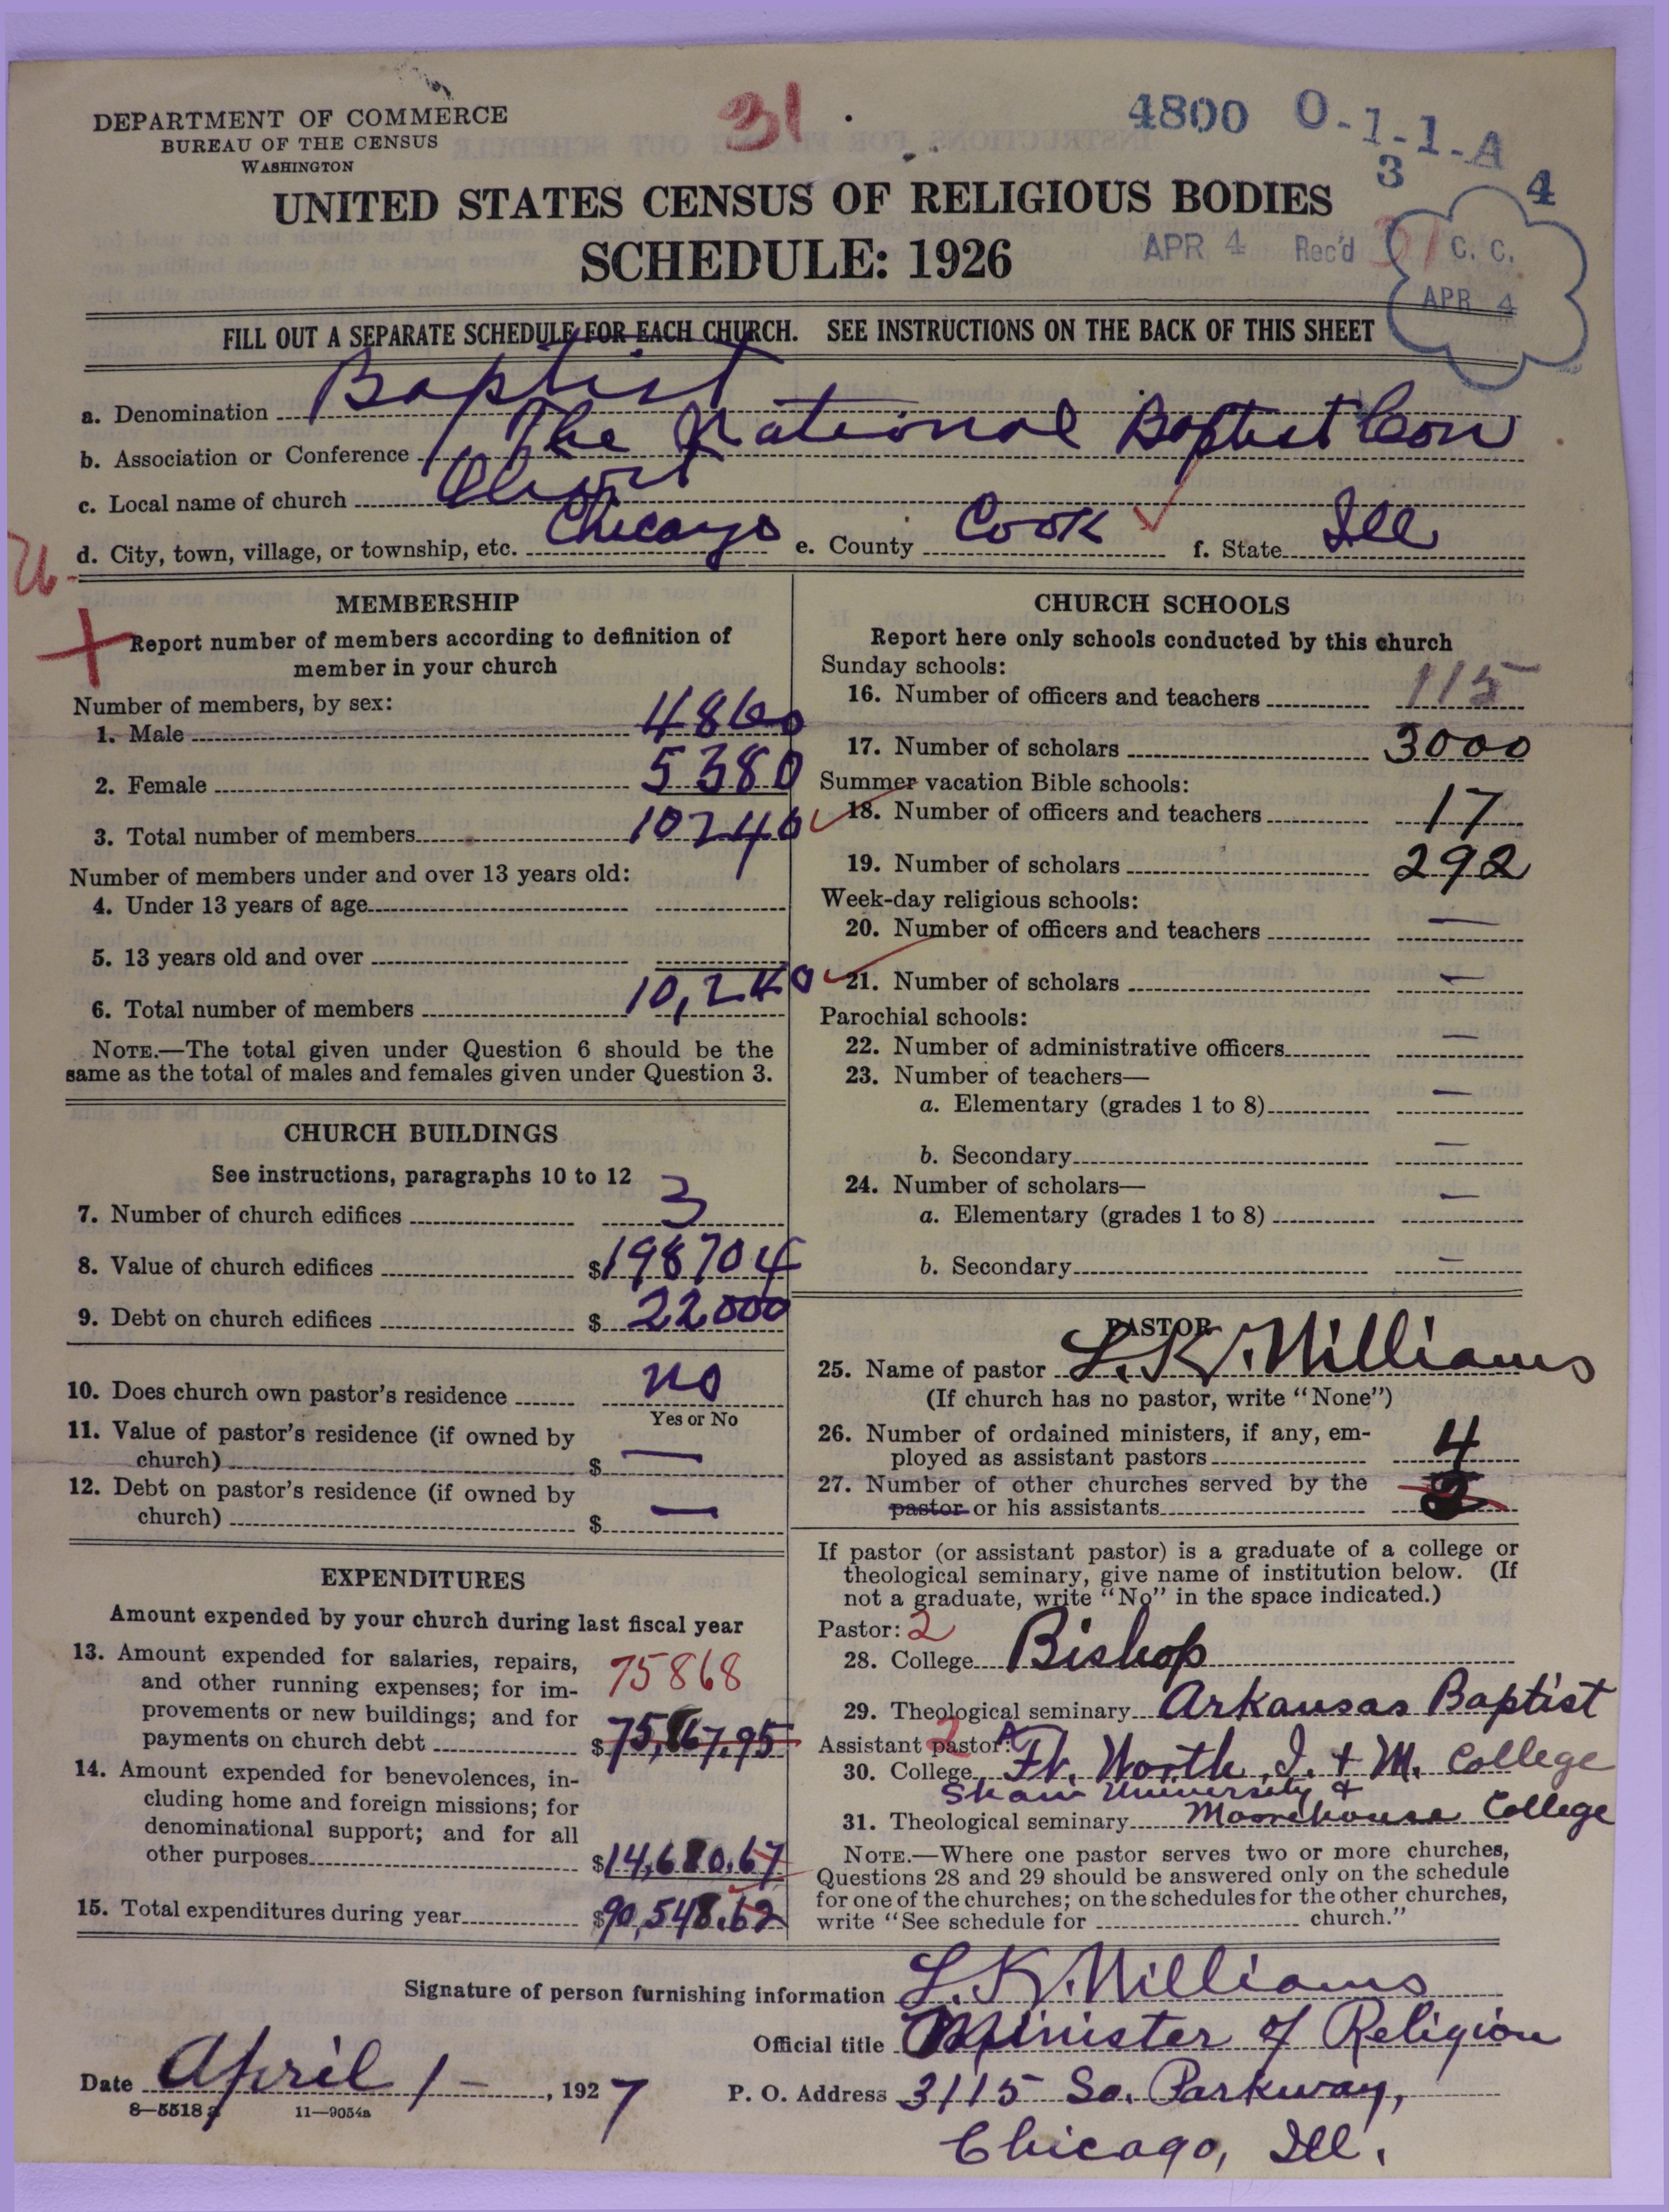 31
4800 O-1-1-A
3 4
DEPARTMENT OF COMMERCE
BUREAU OF THE CENSUS
WASHINGTON
UNITED STATES CENSUS OF RELIGIOUS BODIES
SCHEDULE: 1926
APR 4 Rec'd 31 C. C.
APR 4
FILL OUT A SEPARATE SCHEDULE FOR EACH CHURCH. SEE INSTRUCTIONS ON THE BACK OF THIS SHEET
a. Denomination Baptist
b. Association or Conference The National Baptist Con
c. Local name of church Olivet
d. City, town, village, or township, etc. Chicago e. County Cook f. State Ill
MEMBERSHIP
Report number of members according to definition of
member in your church
Number of members, by sex:
1. Male 4860
2. Female 5380
3. Total number of members 10240
Number of members under and over 13 years old:
4. Under 13 years of age
5. 13 years old and over
6. Total number of members 10,240
NOTE.—The total given under Question 6 should be the
same as the total of males and females given under Question 3.
CHURCH BUILDINGS
See instructions, paragraphs 10 to 12
7. Number of church edifices 3
8. Value of church edifices $198704
9. Debt on church edifices $22000
10. Does church own pastor's residence no
Yes or No
11. Value of pastor's residence (if owned by
church) $ —
12. Debt on pastor's residence (if owned by
church) $ —
EXPENDITURES
Amount expended by your church during last fiscal year
13. Amount expended for salaries, repairs,
and other running expenses; for im- 75868
provements or new buildings; and for
payments on church debt $75,867.95
14. Amount expended for benevolences, in-
cluding home and foreign missions; for
denominational support; and for all
other purposes $14,680.67
15. Total expenditures during year $90,548.62
CHURCH SCHOOLS
Report here only schools conducted by this church
Sunday schools:
16. Number of officers and teachers 115
17. Number of scholars 3000
Summer vacation Bible schools:
18. Number of officers and teachers 17
19. Number of scholars 292
Week-day religious schools:
20. Number of officers and teachers —
21. Number of scholars —
Parochial schools:
22. Number of administrative officers —
23. Number of teachers—
a. Elementary (grades 1 to 8) —
b. Secondary —
24. Number of scholars—
a. Elementary (grades 1 to 8) —
b. Secondary —
PASTOR
25. Name of pastor L. K. Williams
(If church has no pastor, write "None")
26. Number of ordained ministers, if any, em-
ployed as assistant pastors 4
27. Number of other churches served by the
pastor or his assistants
If pastor (or assistant pastor) is a graduate of a college or
theological seminary, give name of institution below. (If
not a graduate, write "No" in the space indicated.)
Pastor: 2
28. College Bishop
29. Theological seminary Arkansas Baptist
Assistant pastor: 2
30. College Ft. Worth I. & M. College
Shaw University &
31. Theological seminary Moorehouse College
NOTE.—Where one pastor serves two or more churches,
Questions 28 and 29 should be answered only on the schedule
for one of the churches; on the schedules for the other churches,
write "See schedule for church."
Signature of person furnishing information L. K. Williams
Official title Minister of Religion
Date April 1 - , 1927 P. O. Address 3115 So. Parkway,
8—5518 a 11—9054a
Chicago, Ill.